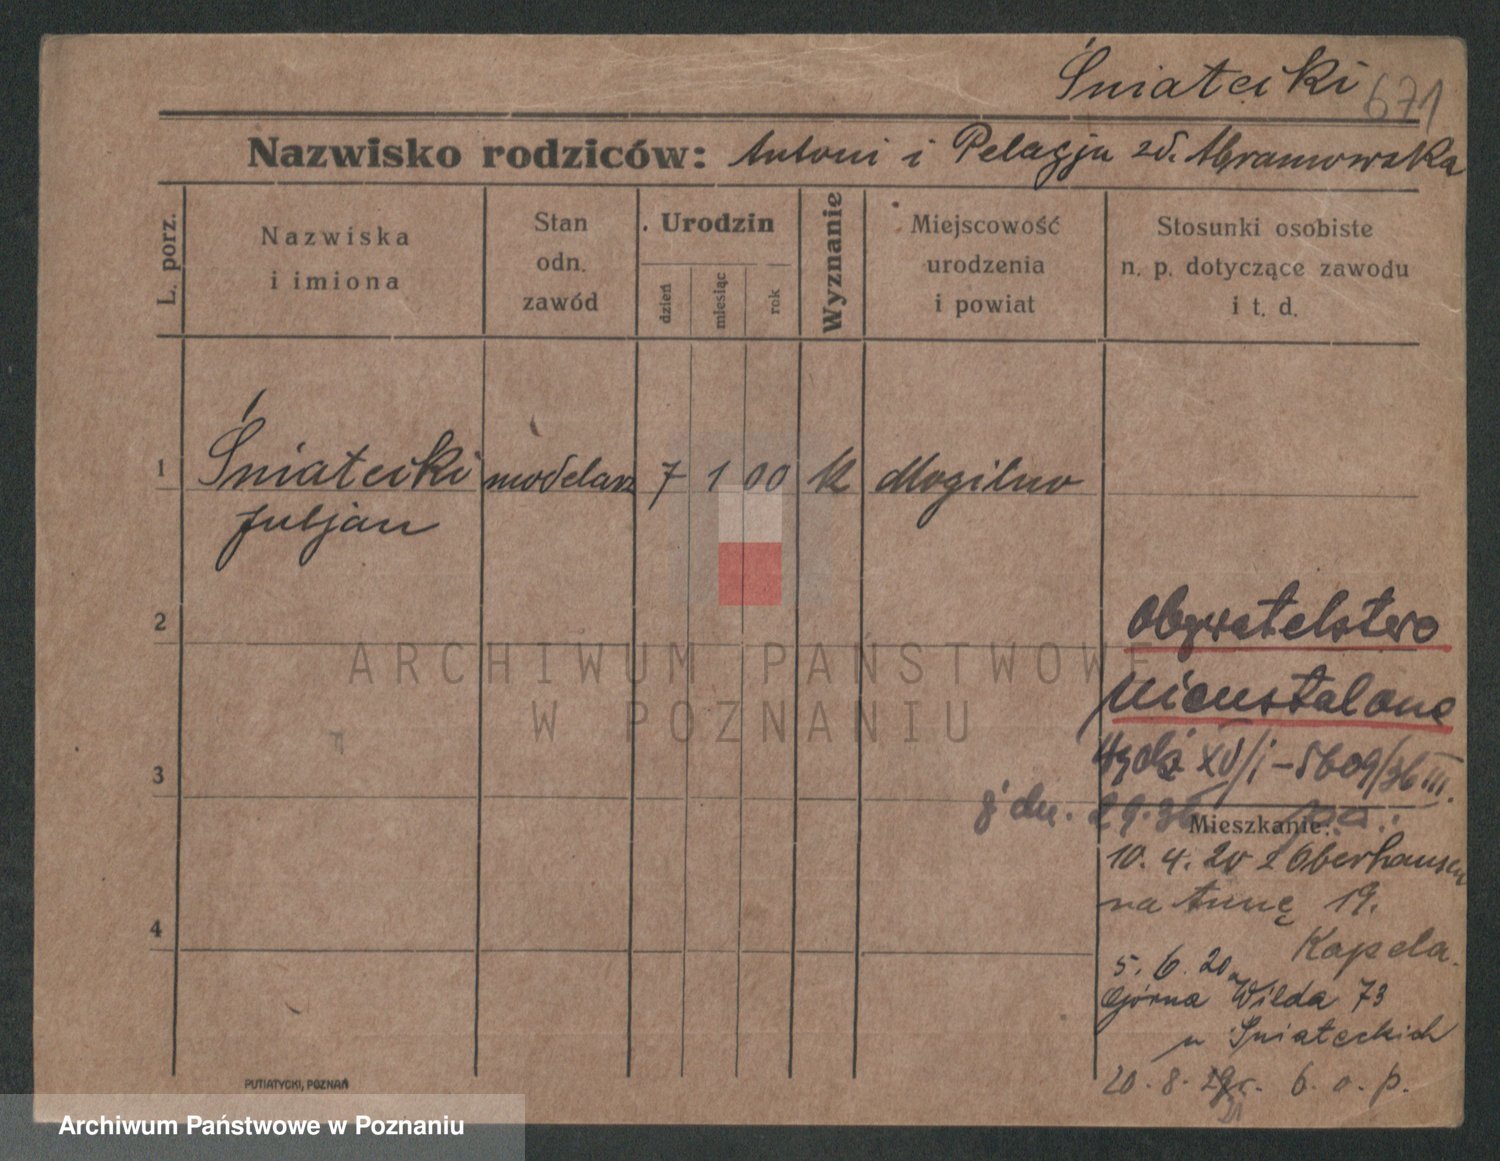 Śniatecki 671
Nazwisko rodziców: Antoni i Pelagja zd. Abramowska
L. porz.
Nazwiska
i imiona
Stan
odn.
zawód
Urodzin
dzień
miesiąc
rok
Wyznanie
Miejscowość
urodzenia
i powiat
Stosunki osobiste
n. p. dotyczące zawodu
i t. d.
1 Śniatecki modelarz 7 1 00 K Mogilno
Juljan
2
Obywatelstwo
nieustalone
3
XV/1-5609/36 III.
z dn. 2 9. 36
Mieszkanie:
10. 4. 20 z Oberhausen
19.
Kapela.
4
5. 6. 20 n
Górna Wilda 73
u Śniateckich
20. 8. 6. o. p.
21
PUTIATYCKI, POZNAŃ
ARCHIWUM PAŃSTWOWE
W POZNANIU
Archiwum Państwowe w Poznaniu